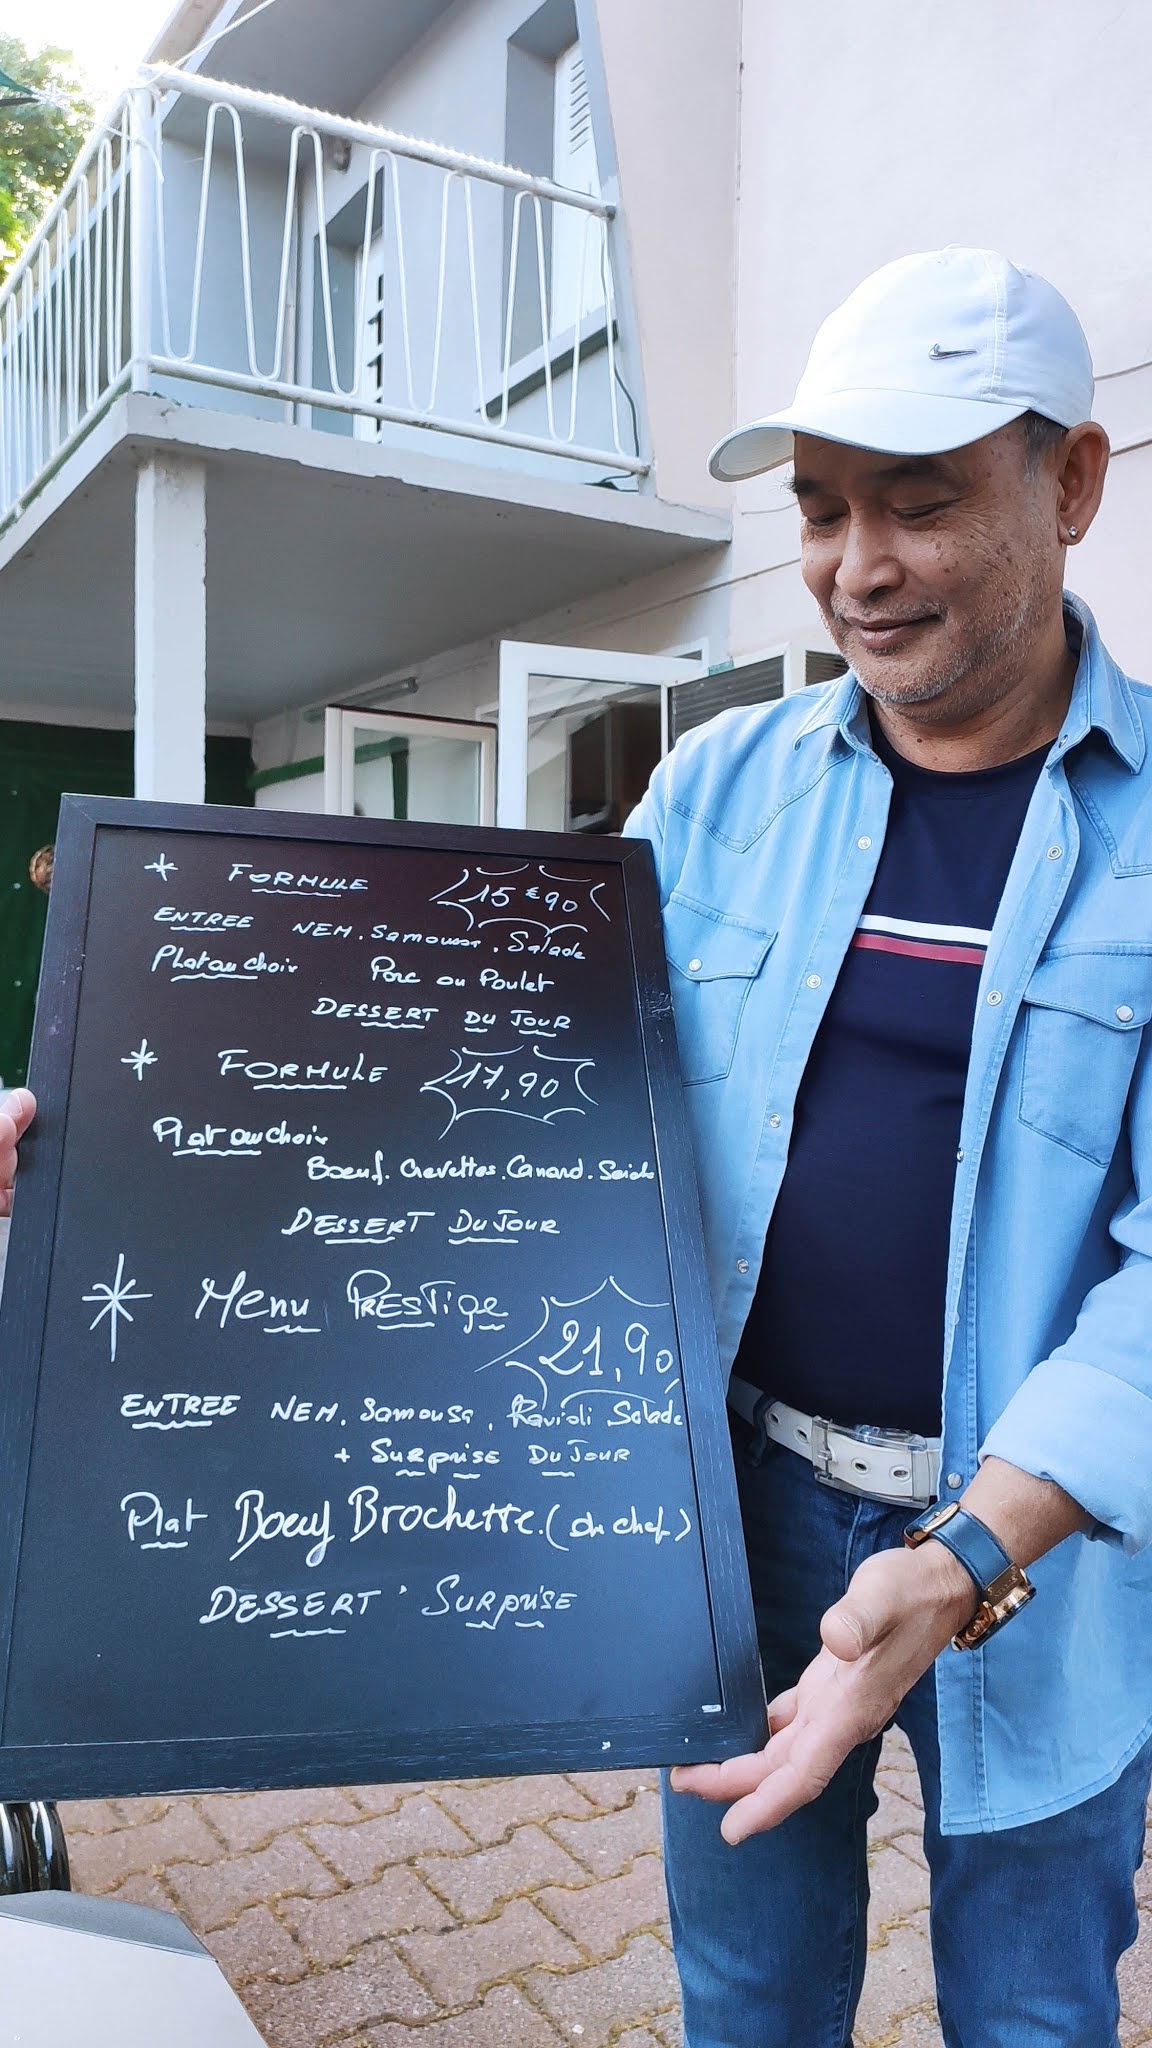 * FORMULE 15€90
ENTREE NEM. Samoussa. Salade
Plat au choix Porc ou Poulet
DESSERT DU JOUR
* FORMULE 17,90
Plat au choix
Boeuf. Crevettes. Canard. Seiche
DESSERT DU JOUR
* Menu PRESTige 21,90
ENTREE NEM. Samousa, Ravioli Salade
+ Surprise DU JOUR
Plat Boeuf Brochette. (du chef)
DESSERT' SURPRISE